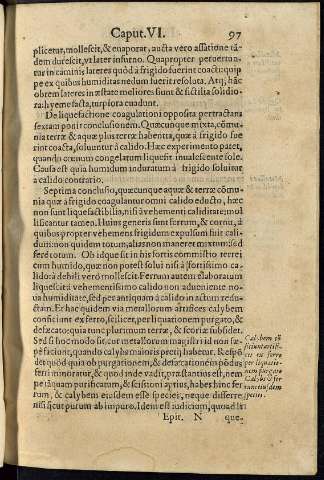 Caput. VI. 97
plicetur, mollescit, & euaporat, aucta vero assatione tā-
dem durescit, vt later in furno. Quapropter peruertun-
tur in caminis lateres quòd à frigido fuerint coacti: quip
pe ex quibus humiditas nedum fuerit resoluta. Atq; hāc
ob rem lateres in æstate meliores sunt & fictilia solidio-
ra: hyeme facta, turpiora euadunt.
De liquefactione coagulationi opposita pertractans
sextam ponit conclusionem. Quæcunque mixta, cōmu-
nia terræ & aquæ plus terræ habentia, quæ à frigido fue
rint coacta, soluuntur à calido. Hæc experimento patet,
quando cœnum congelatum liquescit inualescente sole.
Causa est quia humidum induratum à frigido soluitur
à calido contrario.
Septima conclusio, quæcunque aquæ & terræ cōmu-
nia quæ à frigido coagulantur omni calido educto, hæc
non sunt liquefactibilia, nisi à vehementi caliditate mol
lificantur tamen. Huius generis sunt ferrum, & cornu, à
quibus propter vehemens frigidum expulsum fuit cali-
dum: non quidem totum, alias non maneret mixtum: sed
ferè totum. Ob idque sit in his fortis commistio terrei
cum humido, quæ non potest solui nisi à fortissimo ca-
lido: à debili verò mollescit. Ferrum autem elaboratum
liquescit à vehementissimo calido non adueniente no-
ua humiditate, sed per antiquam à calido in actum redu-
ctam. Et hac quidem via metallorum artifices calybem
conficiunt ex ferro, scilicet, per liquationem purgato, &
defæcato: quia tunc plurimum terræ, & scoriæ subsidet.
Sed si hoc modo fit, cur metallorum magistri id non sæ-
pè faciunt, quando calybs maioris pretij habetur? Respō
det quòd quia ob purgationem, & defæcationē pōdus
ferri minoratur, & quod inde vadit, præstantius est, nem
pe iā quam purificatum, & scissioni aptius, habes hinc fer
rum, & calybem eiusdem esse speciei, neque differre,
nisi sicut purum ab impuro. Idem est audicium, quod in
Calybem cō
ficiunt artifi-
ces ex ferro
per liquatio-
nem purgato
Calybs & fer
rum eiusdem
speciei.
Epit. N que-